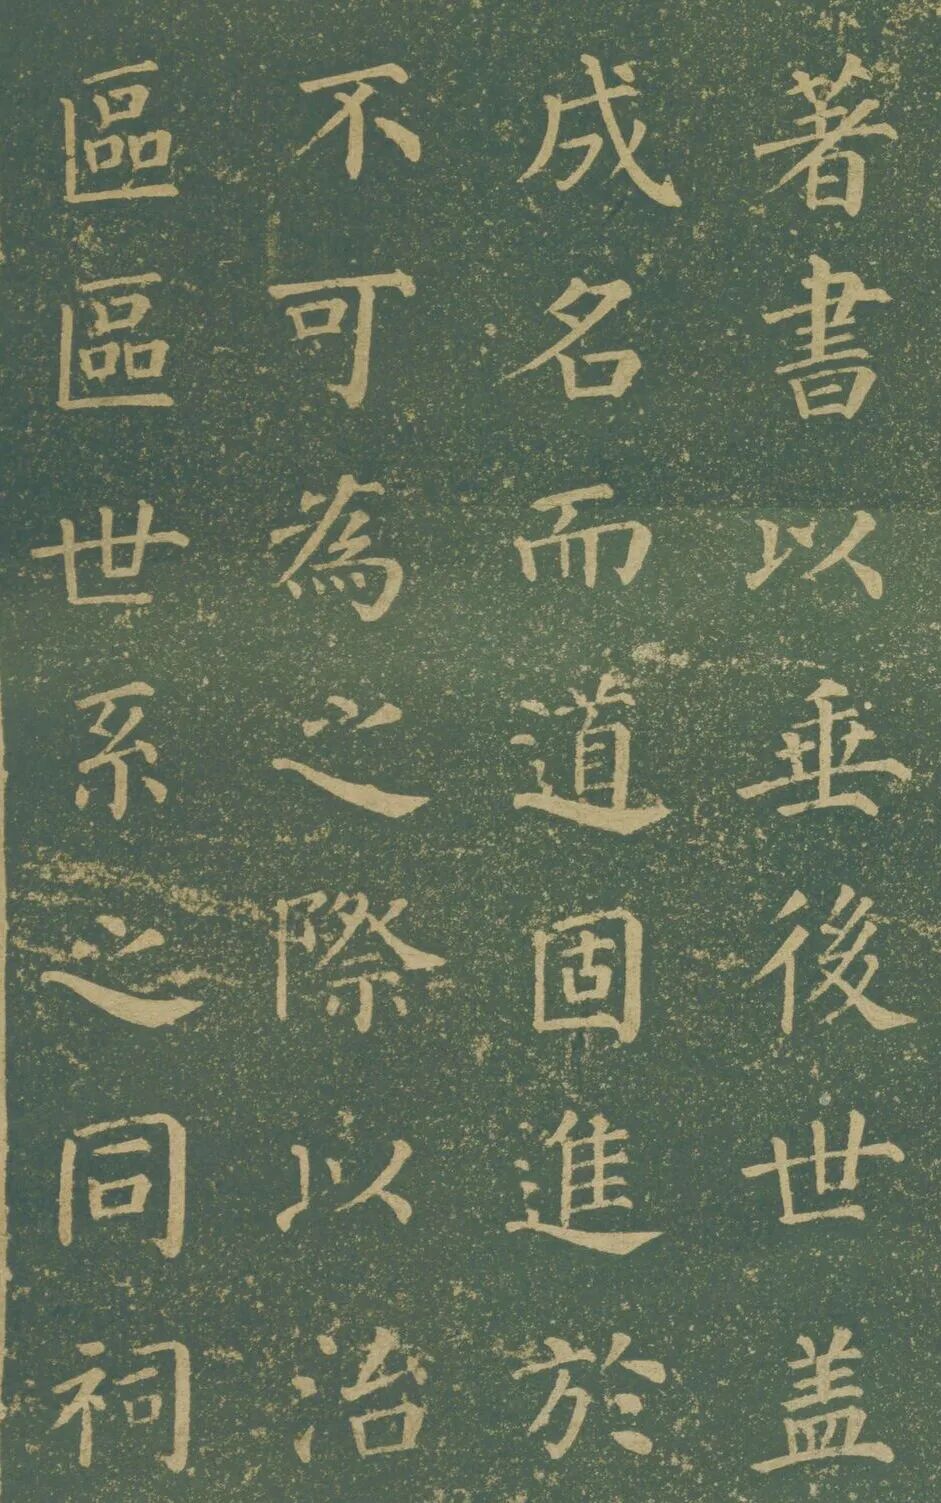 著書以垂後世盖
成名而道固進於
不可為之際以治
區區世系之同祠